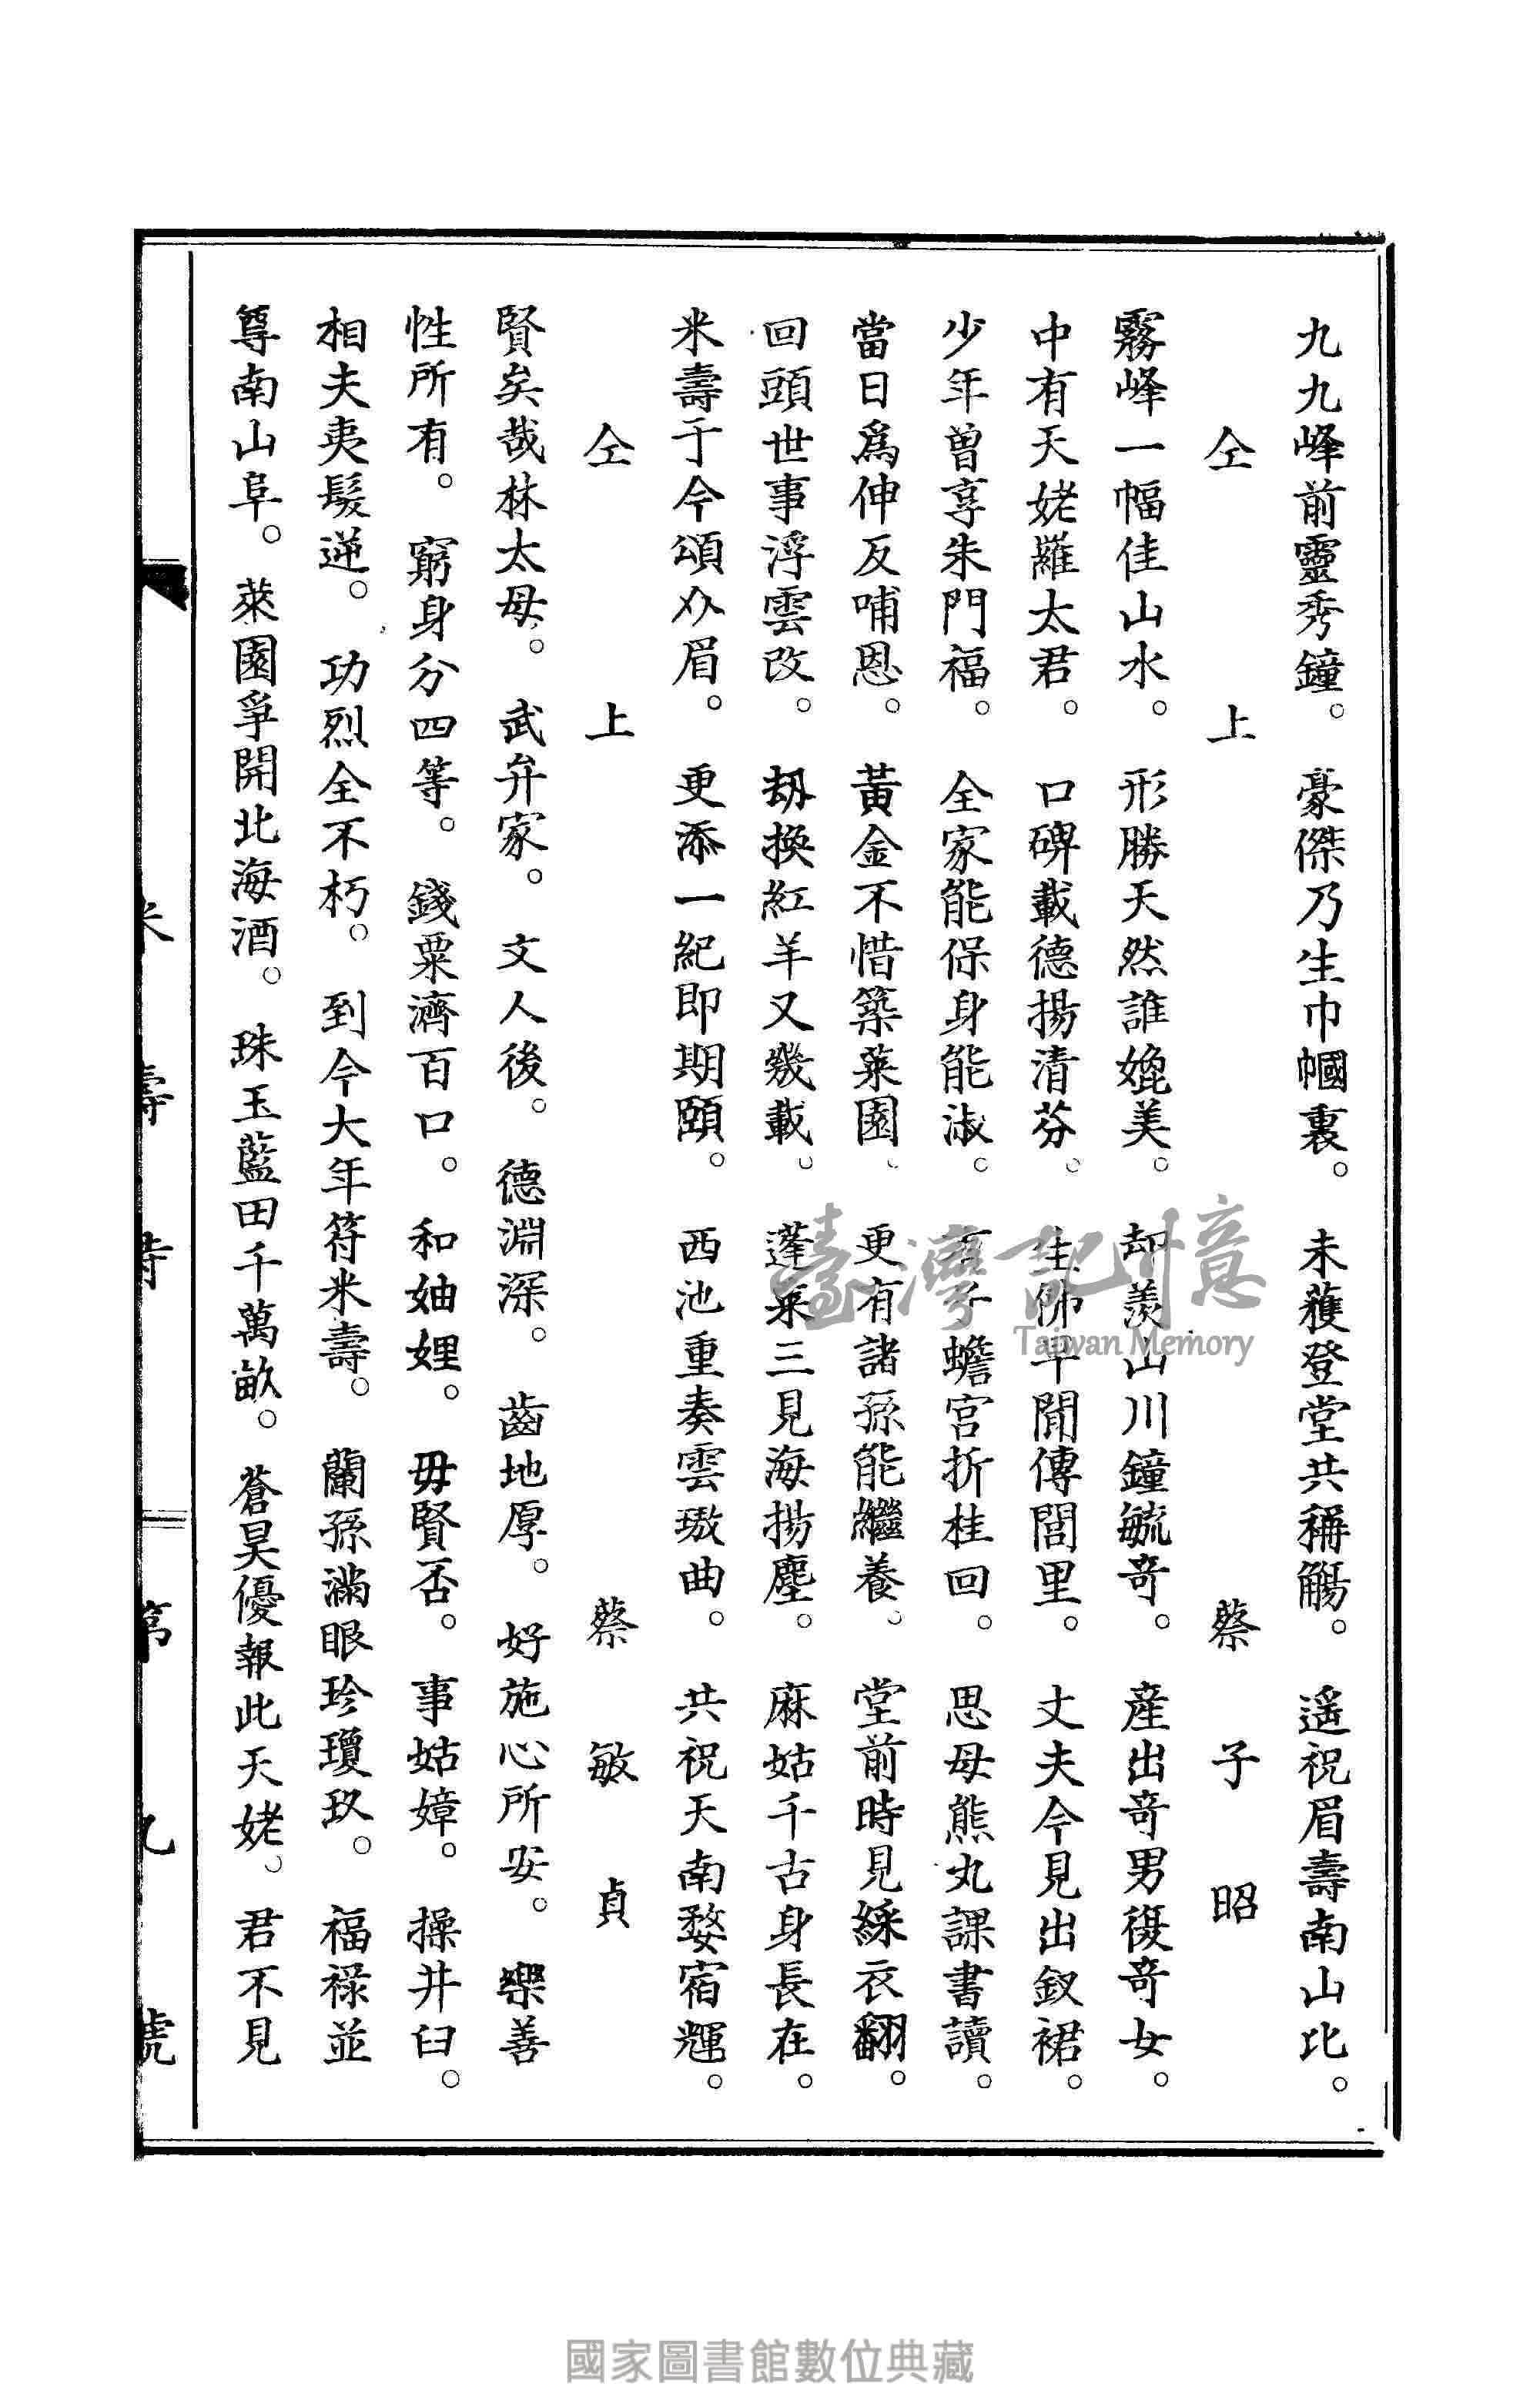 九九峰前靈秀鐘。豪傑乃生巾幗裏。未獲登堂共稱觴。遥祝眉壽南山比。
仝上　蔡子昭
霧峰一幅佳山水。形勝天然誰媲美。却羨山川鐘毓竒。產出竒男復竒女。
中有天姥羅太君。口碑載德揚清芬。生佛早聞傳閭里。丈夫今見出釵裙。
少年曾享朱門福。全家能保身能淑。有子蟾宮折桂回。思母熊丸課書讀。
當日爲伸反哺恩。黃金不惜築萊園。更有諸孫能繼養。堂前時見綵衣翻。
回頭世事浮雲改。刼換紅羊又幾載。蓬萊三見海揚塵。麻姑千古身長在。
米壽于今頌介眉。更添一紀即期頤。西池重奏雲璈曲。共祝天南婺宿輝。
仝上　蔡敏貞
賢矣哉林太母。武弁家。文人後。德淵深。齒地厚。好施心所安。樂善
性所有。窮身分四等。錢粟濟百口。和妯娌。毋賢否。事姑嫜。操井臼。
相夫夷髮逆。功烈全不朽。到今大年符米壽。蘭孫滿眼珍瓊玖。福祿並
尊南山阜。萊園爭開北海酒。珠玉藍田千萬畝。蒼昊優報此天姥。君不見
米壽詩　第九號
臺灣記憶
Taiwan Memory
國家圖書館數位典藏